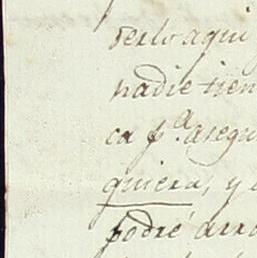 verlo aqui
nadie tien
ca p.ª asegu
quiera, y
podré arro